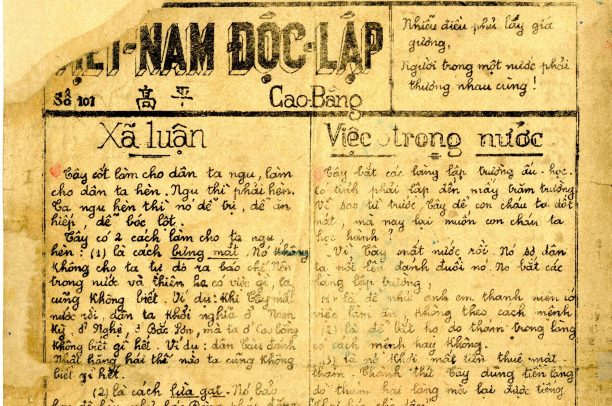 VIỆT-NAM ĐỘC-LẬP
Số 101
高平
Cao-Bằng
Nhiễu điều phủ lấy giá
gương,
Người trong một nước phải
thương nhau cùng!
Xã luận
Tây cốt làm cho dân ta ngu, làm
cho dân ta hèn. Ngu thì phải hèn.
Ta ngu hèn thì nó dễ trị dễ ăn
hiếp, dễ bóc lột.
Tây có 2 cách làm cho ta ngu,
hèn: (1) là cách bưng mắt. Nó không
không cho ta tự do ra báo chí. Nên
trong nước và thiên hạ có việc gì, ta
cũng không biết. Ví dụ: khi Tây mất
nước rồi, dân ta khởi nghĩa ở Nam
Kỳ, ở Nghệ, ở Bắc Sơn, mà ta ở Cao Bằng
không biết gì hết. Ví dụ: dân Tàu đánh
Nhật hăng hái thế nào ta cũng không
biết gì hết.
(2) là cách lừa gạt. Nó bảo
Việc trong nước
Tây bắt các làng lập trường ấu-học.
Cố tình phải lập đến mấy trăm trường
Vì sao từ trước Tây để con cháu ta dốt
nát, mà nay lại muốn con cháu ta
học hành?
Vì Tây mất nước rồi. Nó sợ dân
ta nổi lên đánh đuổi nó. Nó bắt các
làng lập trường,
1- là để nhử anh em thanh niên có
việc làm ăn, không theo cách mệnh
(2) là để bắt họ do thám trong làng
có cách mệnh hay không.
(3) là nó khỏi mất tiền thuê mật-
thám. Thành thử Tây dùng tiền làng
do thám hại làng mà lại được tiếng